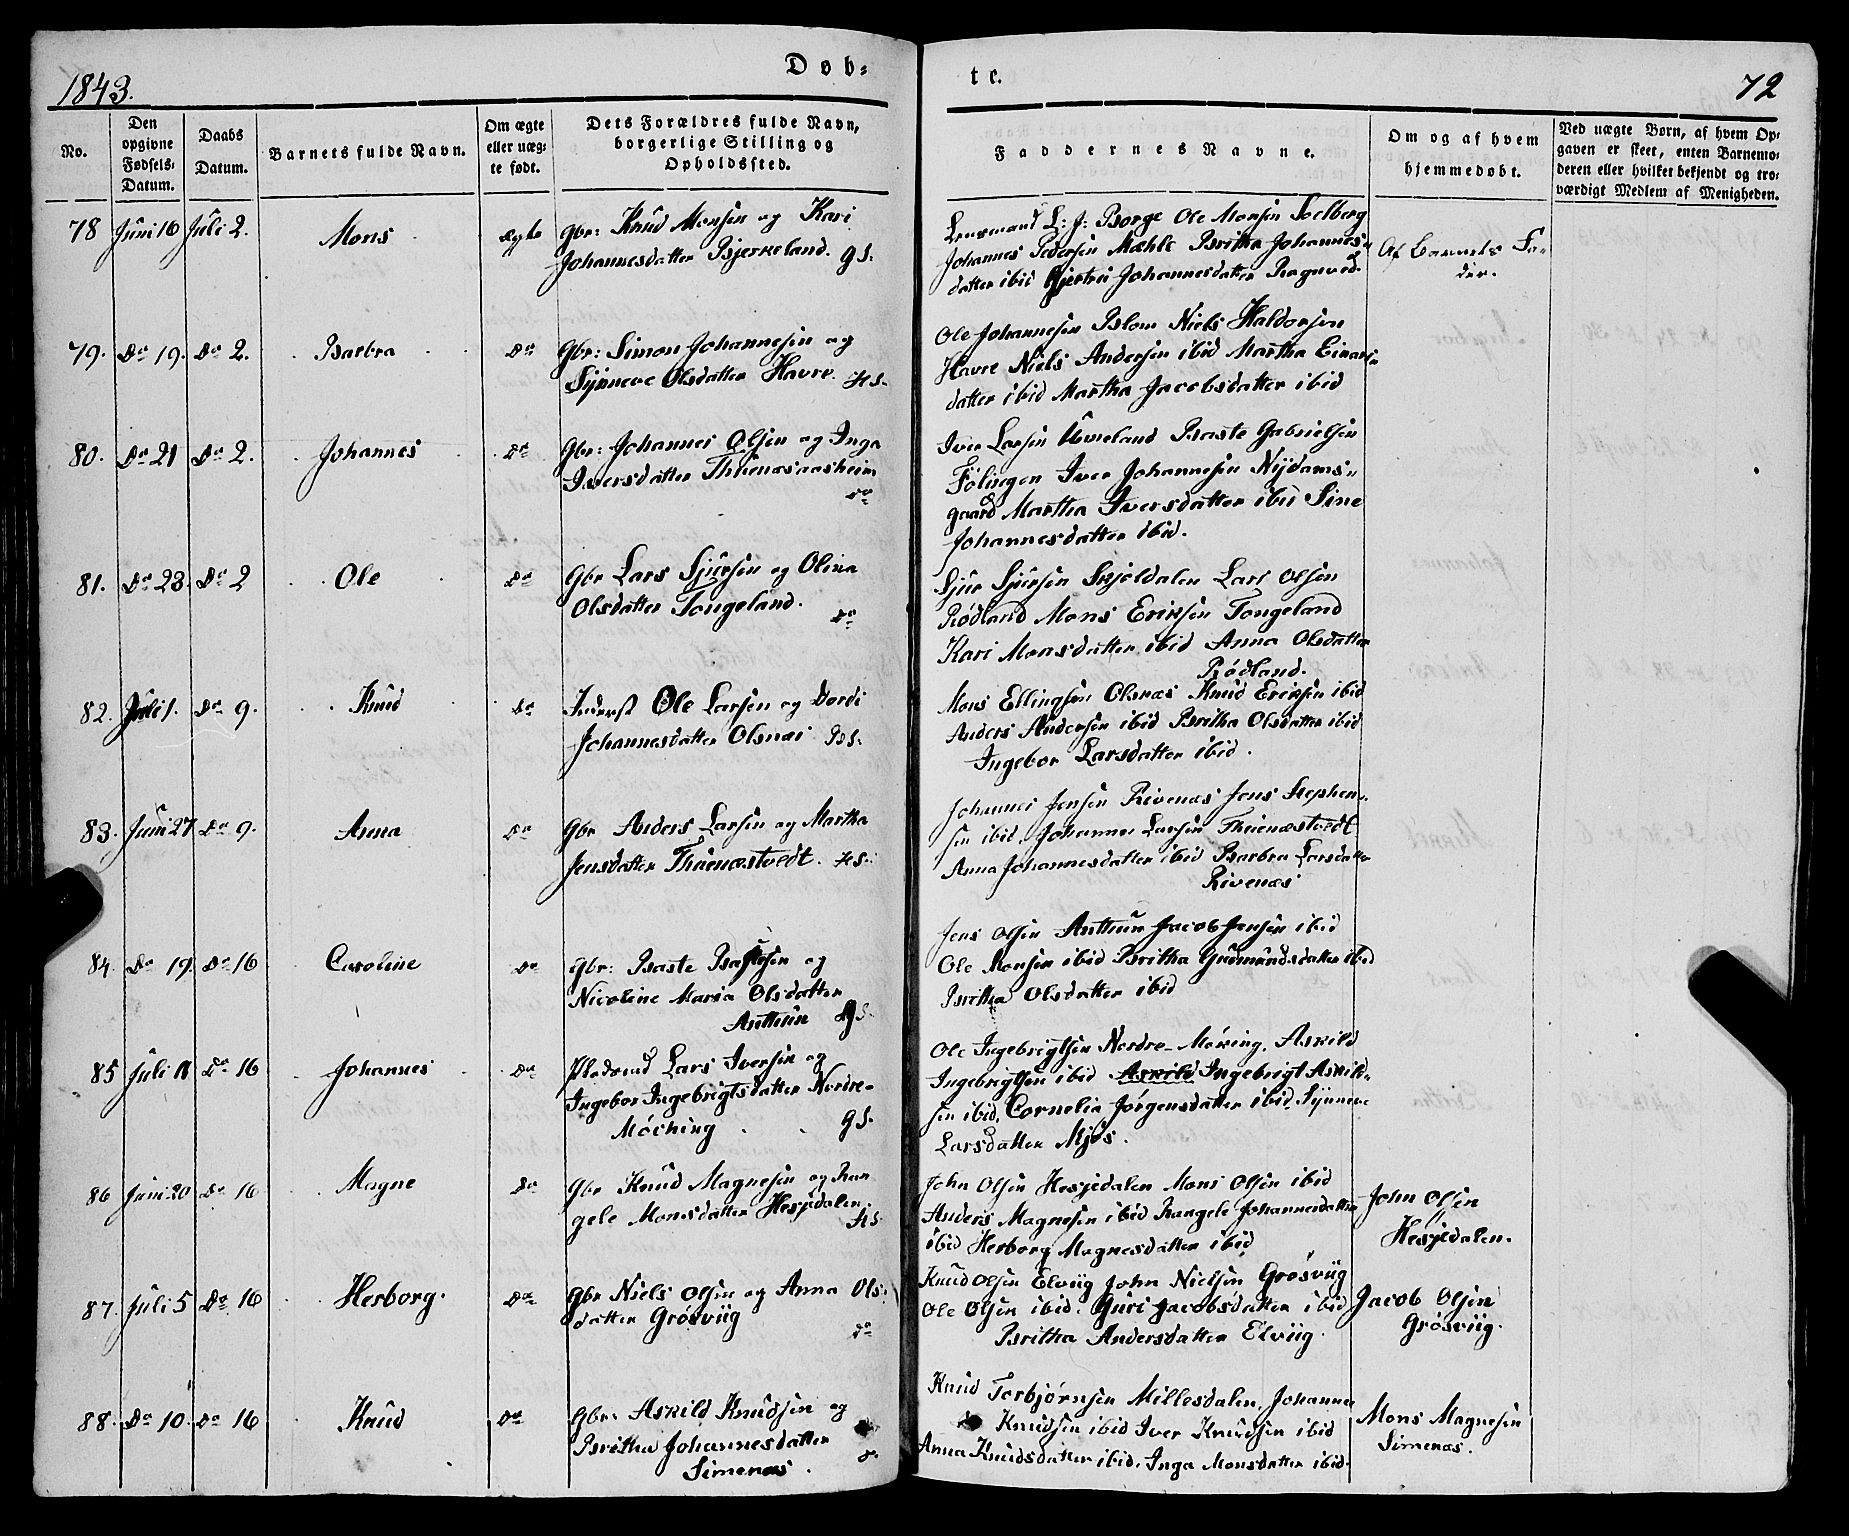 1843.
Døb-
te.
72
No.
Den opgivne Fødsels-Datum.
Daabs Datum.
Barnets fulde Navn.
Om ægte eller uægte født.
Dets Forældres fulde Navn, borgerlige Stilling og Opholdssted.
Faddernes Navne.
Om og af hvem hjemmedøbt.
Ved uægte Børn, af hvem Opgaven er skeet, enten Barnemoderen eller hvilket bekjendt og troværdigt Medlem af Menigheden.
78 Juni 16 Juli 2. Mons ægte
Gbr: Knud Monsen og Kari
Johannesdatter Bjerkeland. gS.
Lensmand L: J: Borge Ole Monsen Soelberg
Johannes Pedersen Mæhle Britha Johannes-
datter ibid Gjertru Johannesdatter
Af Barnets Fa-
der.
79. Do 19. Do 2. Barbra Do
Gbr: Simon Johannesen og
Synneve Olsdatter Havre. HS.
Ole Johannesen Blom Niels Haldorsen
Havre Niels Andersen ibid Martha Einars-
datter ibid Martha Jacobsdatter ibid
80. Do 21 Do 2. Johannes Do
Gbr: Johannes Olsen og Inga
Iversdatter Thuenæsaasheim
Do
Iver Larsen Uvneland Baste Gabrielsen
Fölingen Iver Johannesen Nÿdams-
gaard Martha Iversdatter ibid Sine
Johannesdatter ibid.
81. Do 23. Do 2 Ole Do
Gbr Lars Sjursen og Olina
Olsdatter Tongeland.
Do
Sjur Sjursen Skjoldalen Lars Olsen
Rødland Mons Eriksen Tongeland
Kari Monsdatter ibid Anna Olsdatter
Rødland.
82. Juli 1. Do 9. Knud Do
Inderst Ole Larsen og Dordi
Johannesdatter Olsnæs BS.
Mons Ellingsen Olsnæs Knud Eriksen ibid
Anders Andersen ibid Britha Olsdatter ibid
Ingebor Larsdatter ibid.
83. Juni 27 Do 9. Anna Do
Gbr Anders Larsen og Martha
Jensdatter Thuenæstvedt. HS.
Johannes Jensen Rivenæs Jens Stephen-
sen ibid, Johannes Larsen Thuenæstvedt
Anna Johannesdatter ibid Barbra Larsdatter
Rivenæs
84. Do 19. Do 16 Caroline Do
Gbr: Baste Bastesen og
Nicoline Maria Olsdatter
Anthun gS.
Jens Olsen Anthun Jacob Jensen ibid
Ole Monsen ibid Britha Gudmundsdatter ibid
Britha Olsdatter ibid
85 Juli 11 Do 16 Johannes Do
Pladsmd Lars Iversen og
Ingebor Ingebrigtsdatter Nordre-
Møching gS.
Ole Ingebrigtsen Nordre-Møking. Askild
Ingebrigtsen ibid Askild Ingebrigt Askild-
sen ibid. Cornelia Jørgensdatter ibid. Synneve
Larsdatter Mjøs.
86 Juni 20 Do 16 Magne Do
Gbr Knud Magnesen og Ran
gele Monsdatter Hesjedalen.
HS.
John Olsen Hesjedalen Mons Olsen ibid
Anders Magnesen ibid Rangele Johannesdatter
ibid Herborg Magnesdatter ibid
John Olsen
Hesjedalen.
87. Juli 5 Do 16 Herborg. Do
Gbr Niels Olsen og Anna Ols-
datter Grøsviig
Do
Knud Olsen Elviig John Nielsen Grøsviig
Ole Olsen ibid. Guri Jacobsdatter ibid
Britha Andersdatter Elviig.
Jacob Olsen
Grøsviig.
88. Do 10. Do 16 Knud Do
Gbr: Askild Knudsen og
Britha Johannesdatter
Simenæs.
Knud Torbjørnsen Millesdalen, Johannes
Knudsen ibid Iver Knudsen ibid
Anna Knudsdatter ibid. Inga Monsdatter ibid.
Mons Magnesen
Simenæs.